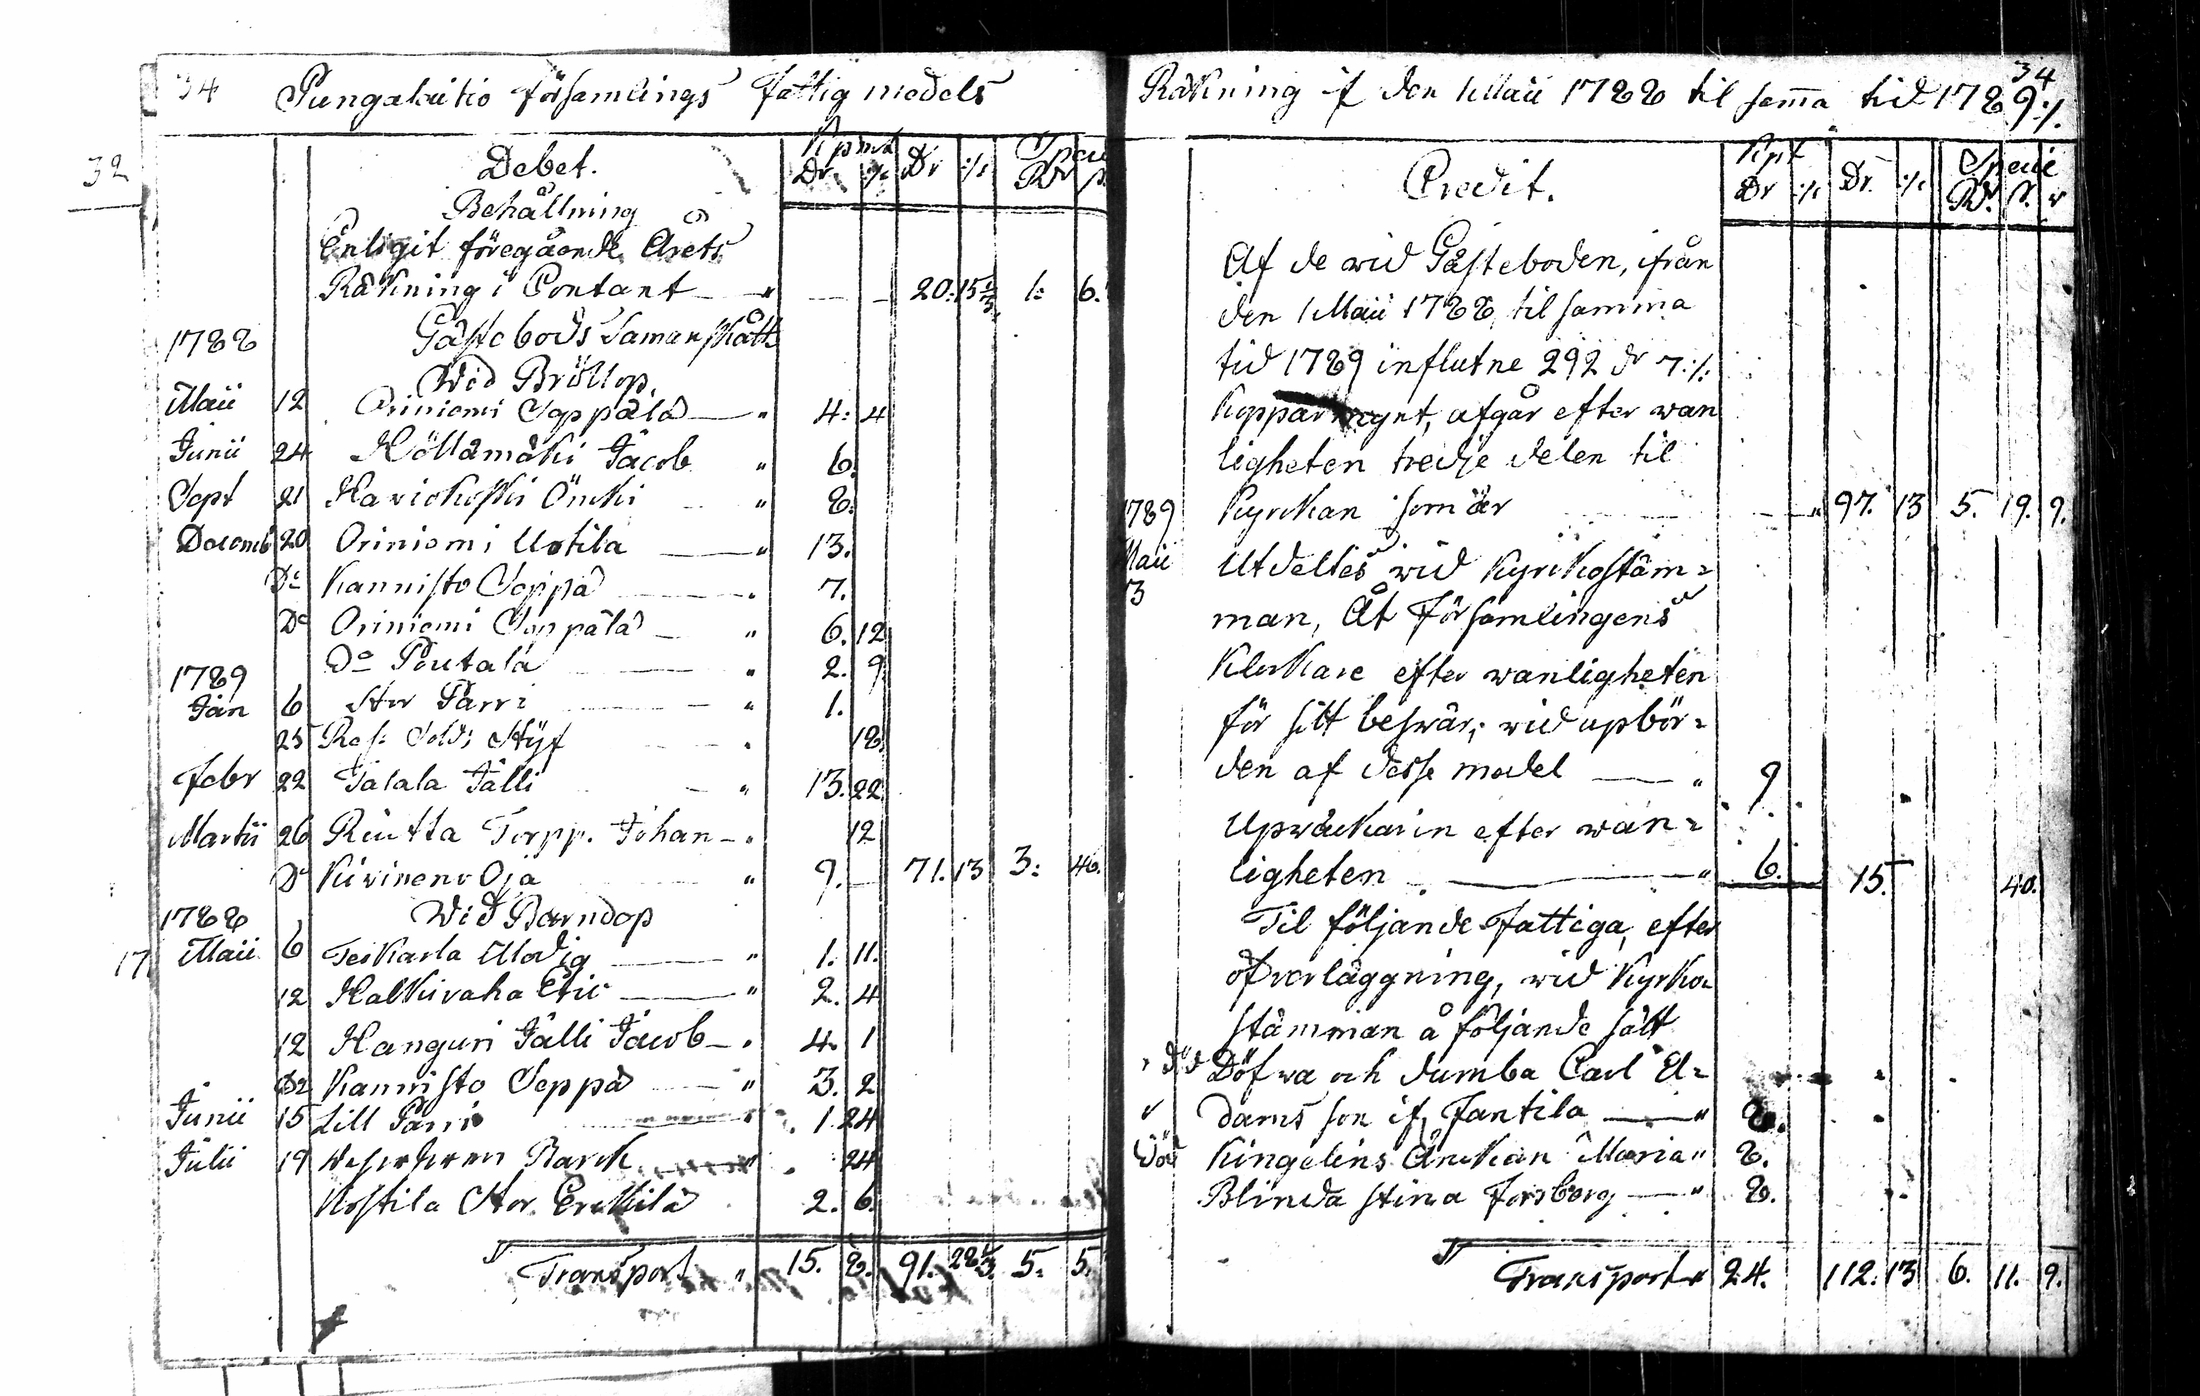 34 Pungalaitio församlings Fattig medels
32
Debet.
Kpmt Dr :/: Dr :/: Specie Rdr s.
Behållning
Enligit föregående Årets
Räkning i Contant — " — — 20: 15 1/3. 1: 6.
1788 Gästebods Samanskått
Wid Bröllop.
Maii 12 Oriniemi Seppälä — " 4: 4
Junii 24 Höllämäki Jacob " 6.
Sept 21 Haviokoski " 8.
Decemb 20 Oriniemi Uotila — " 13.
Do Kannisto Seppä " 7.
Do Oriniemi Seppälä — " 6. 12
Do Poutala " 2. 9.
1789
Jan 6 Stor Parri — " 1.
25 Res: Sold: Styf " 18.
Febr 22 Talala Jälli — " 13. 22.
Martii 26 Riutta Torpp. Johan — " 12
Do Kiviniemi Oja " 9. — 71. 13 3: 46.
1788 Wid Barndop
17. Maii 6 Teikarla Modig — " 1. 11.
12 Halkivaha Eric — " 2. 4
12 Hanguri Jälli Jacob — " 4. 1
Do Kannisto Seppä — " 3. 2
Junii 15 Lill Parri " 1. 24
Julii 19 Barck " 24
Kostila Stor Erckilä 2. 6.
Transport " 15. 8. 91. 28 1/3. 5: 5.
34
Räkning if den 1 Maii 1788 til sama tid 1789 ./.
Credit.
Kpt Dr :/: Dr. :/: Specie Rdr. s. r
Af de wid Gästeboden, ifrån
den 1 Maii 1788, til samma
tid 1789 influtne 292 dr 7 :/:
Kopparmynt, afgår efter wan
ligheten tredje delen til
1789 Kyrckan som är — " 97. 13 5. 19. 9.
Maii Utdeltes wid Kyrckostäm=
3 man, Åt Församlingens
Klockare efter wanligheten
för sitt beswär, wid upbör=
den af desse medel — " 9
Upwäckarin efter wan=
ligheten — " 6. 15. — 40.
Til följande Fattiga, efter
öfverläggning, wid Kyrko=
stämman å följande sätt
död Döfwa och dumba Carl A=
dams son if. Fantila — " 8.
död Kingelins Änckan Maria " 8.
Blinda Stina Forsberg — " 8.
Transport " 24. 112. 13 6. 11. 9.